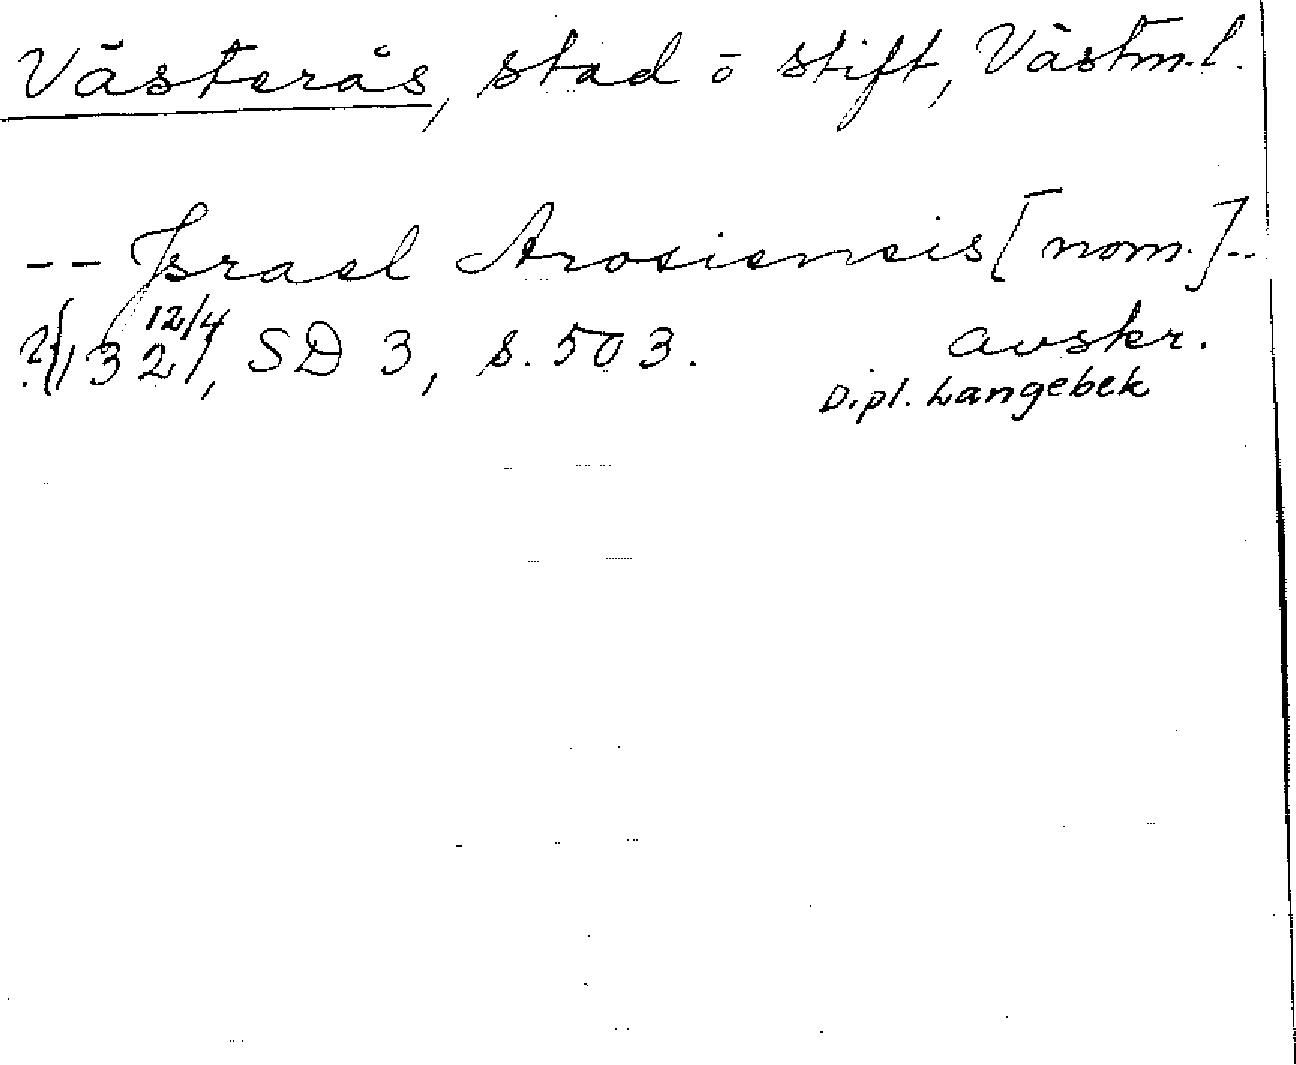 Västerås, stad o stift, Västm.l.
-- Israel Arosiensis [nom.]--
12/4
1321, SD 3, s. 503. avskr.
Dipl. Langebek